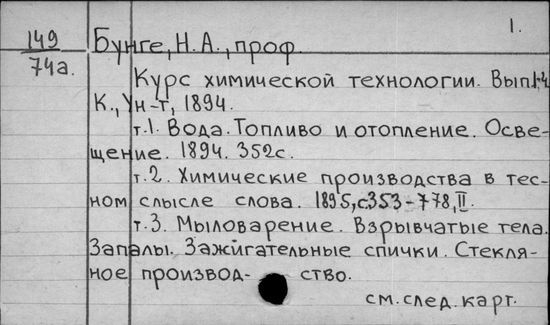 1.
149 Бунге, Н.А., проф.
74а.
Курс химической технологии. Вып.1-4
К., Ун-т, 1894.
т.1. Вода. Топливо и отопление. Осве-
щение. 1894. 352с.
т.2. Химические производства в тес-
ном слысле слова. 1895, с.353-778, II.
т.3. Мыловарение. Взрывчатые тела.
Запалы. Зажигательные спички. Стекля-
ное производ- ство.
см. след. карт.